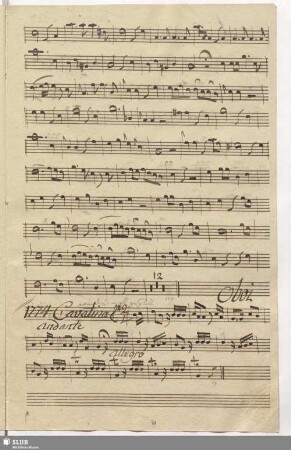 12
Oboi.
1774 Cavatina
andante
allegro
SLUB
Wir führen Wissen.